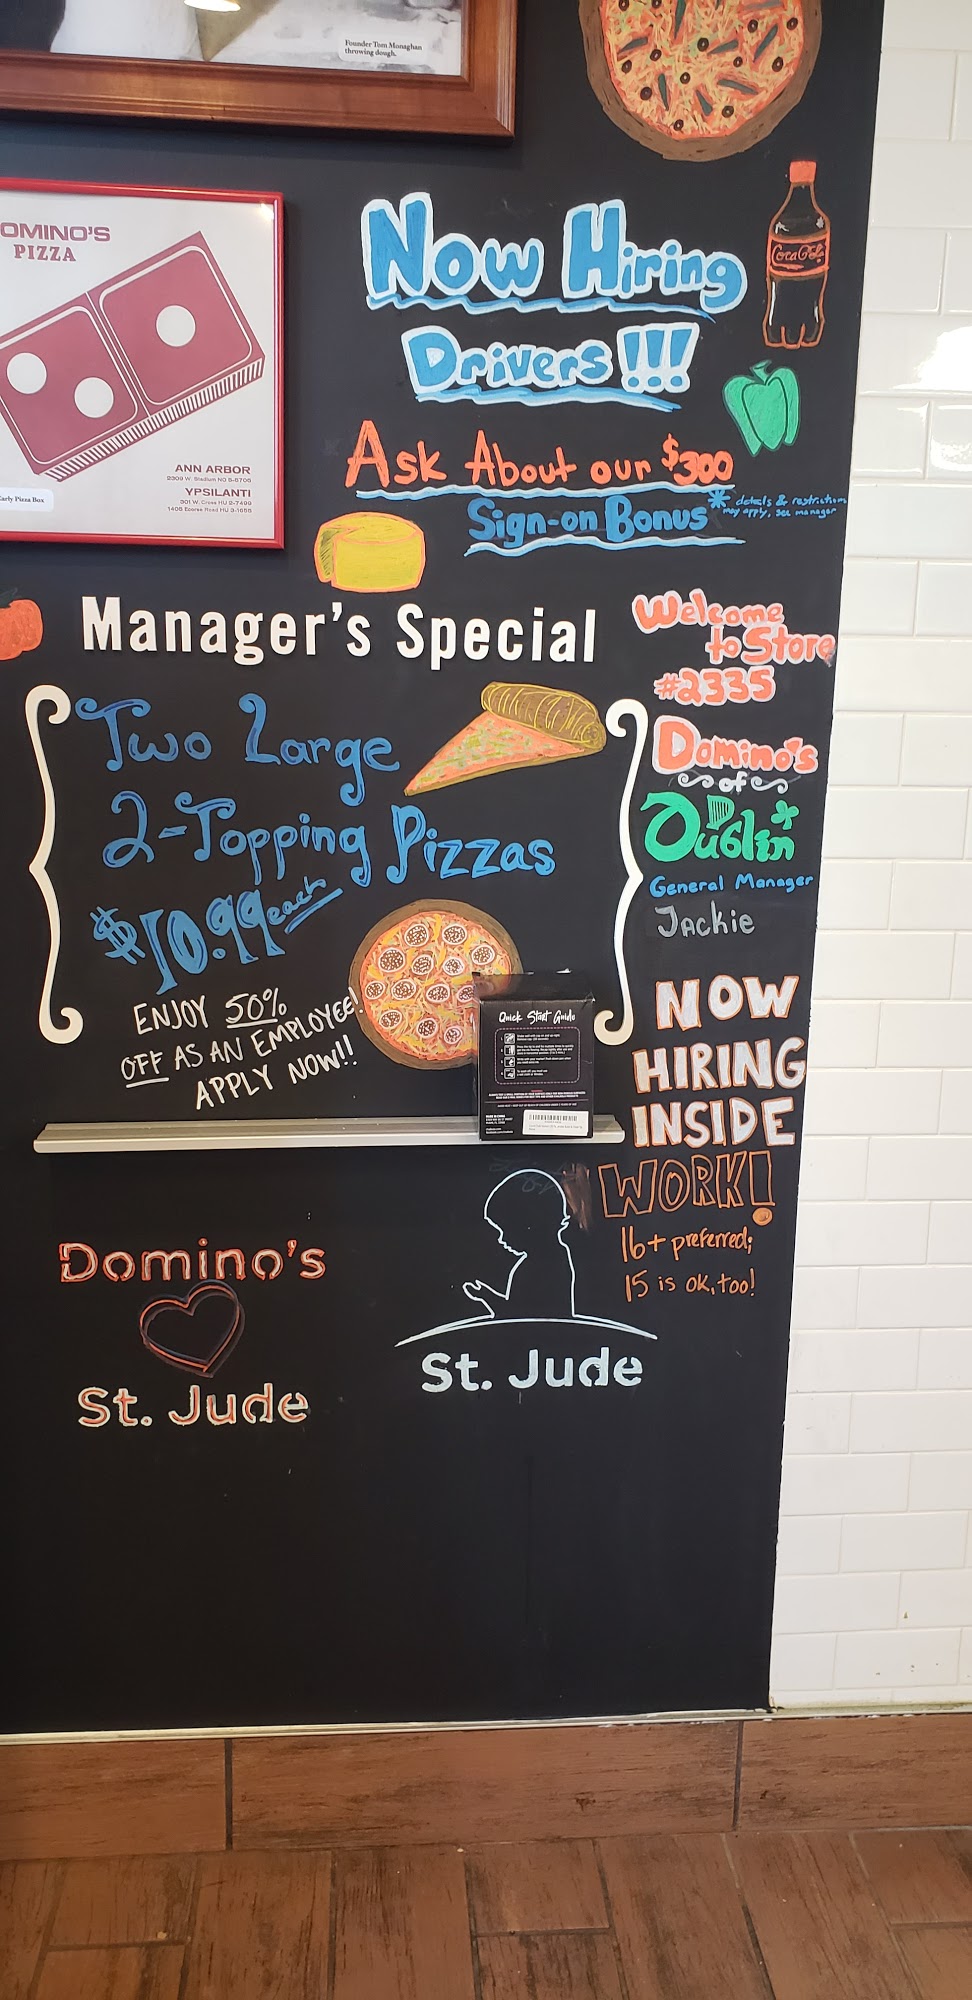 Founder Tom Monaghan
throwing dough.
OMINO'S
PIZZA
ANN ARBOR
2309 W. Stadium NO 8-8706
YPSILANTI
301 W. Cross HU 2-7499
1405 Ecorse Road HU 3-1655
Early Pizza Box
Now Hiring
Drivers!!!
Coca-Cola
Ask About our $300
Sign-on Bonus*
details & restrictions
may apply, see manager
Manager's Special
Two Large
2-Topping Pizzas
$10.99 each
ENJOY 50%
OFF AS AN EMPLOYEE!
APPLY NOW!!
Quick Start Guide
Welcome
to Store
#2335
Domino's
of
Dublin
General Manager
Jackie
NOW
HIRING
INSIDE
WORK!
16+ preferred;
15 is ok, too!
Domino's
St. Jude
St. Jude